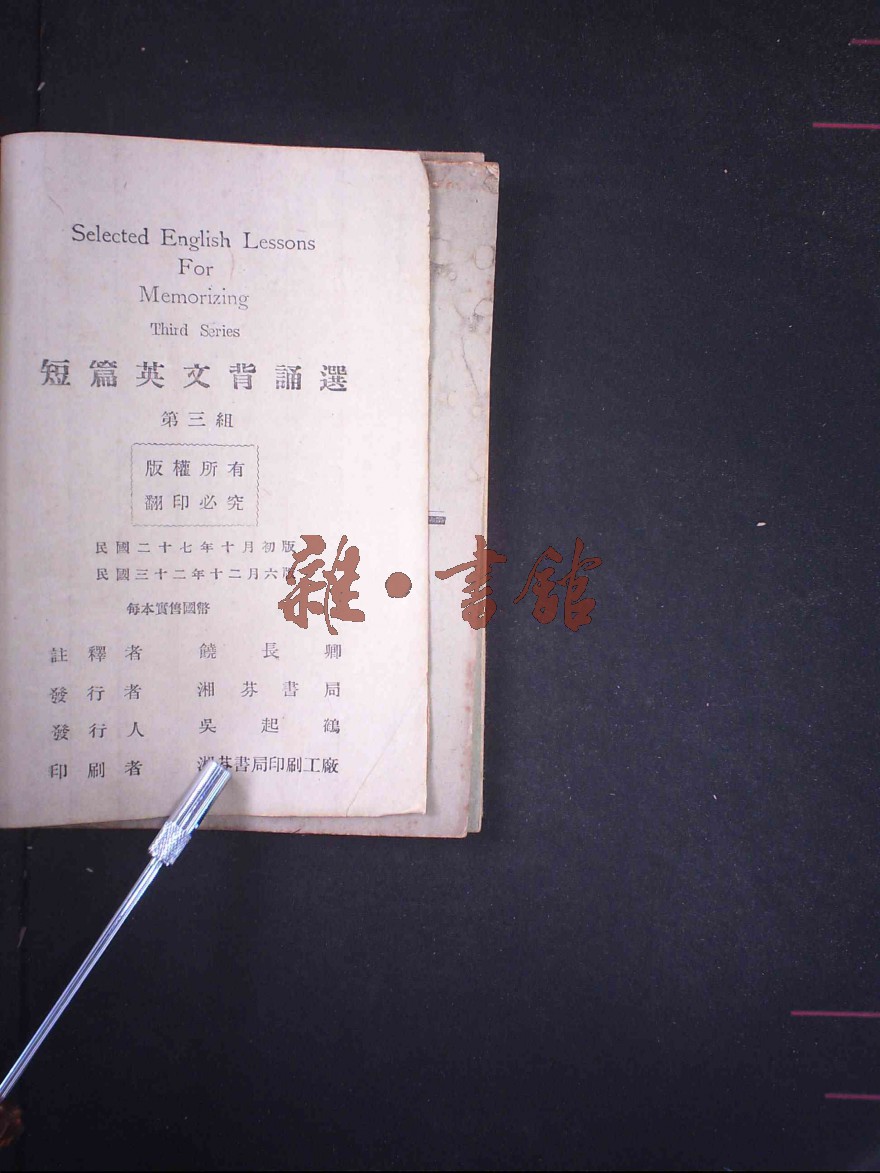 Selected English Lessons
For
Memorizing
Third Series
短篇英文背誦選
第三組
版權所有
翻印必究
民國二十七年十月初版
民國三十二年十二月六版
每本實售國幣
註釋者 饒長卿
發行者 湘芬書局
發行人 吳起鶴
印刷者 湘芬書局印刷工廠
雜·書館